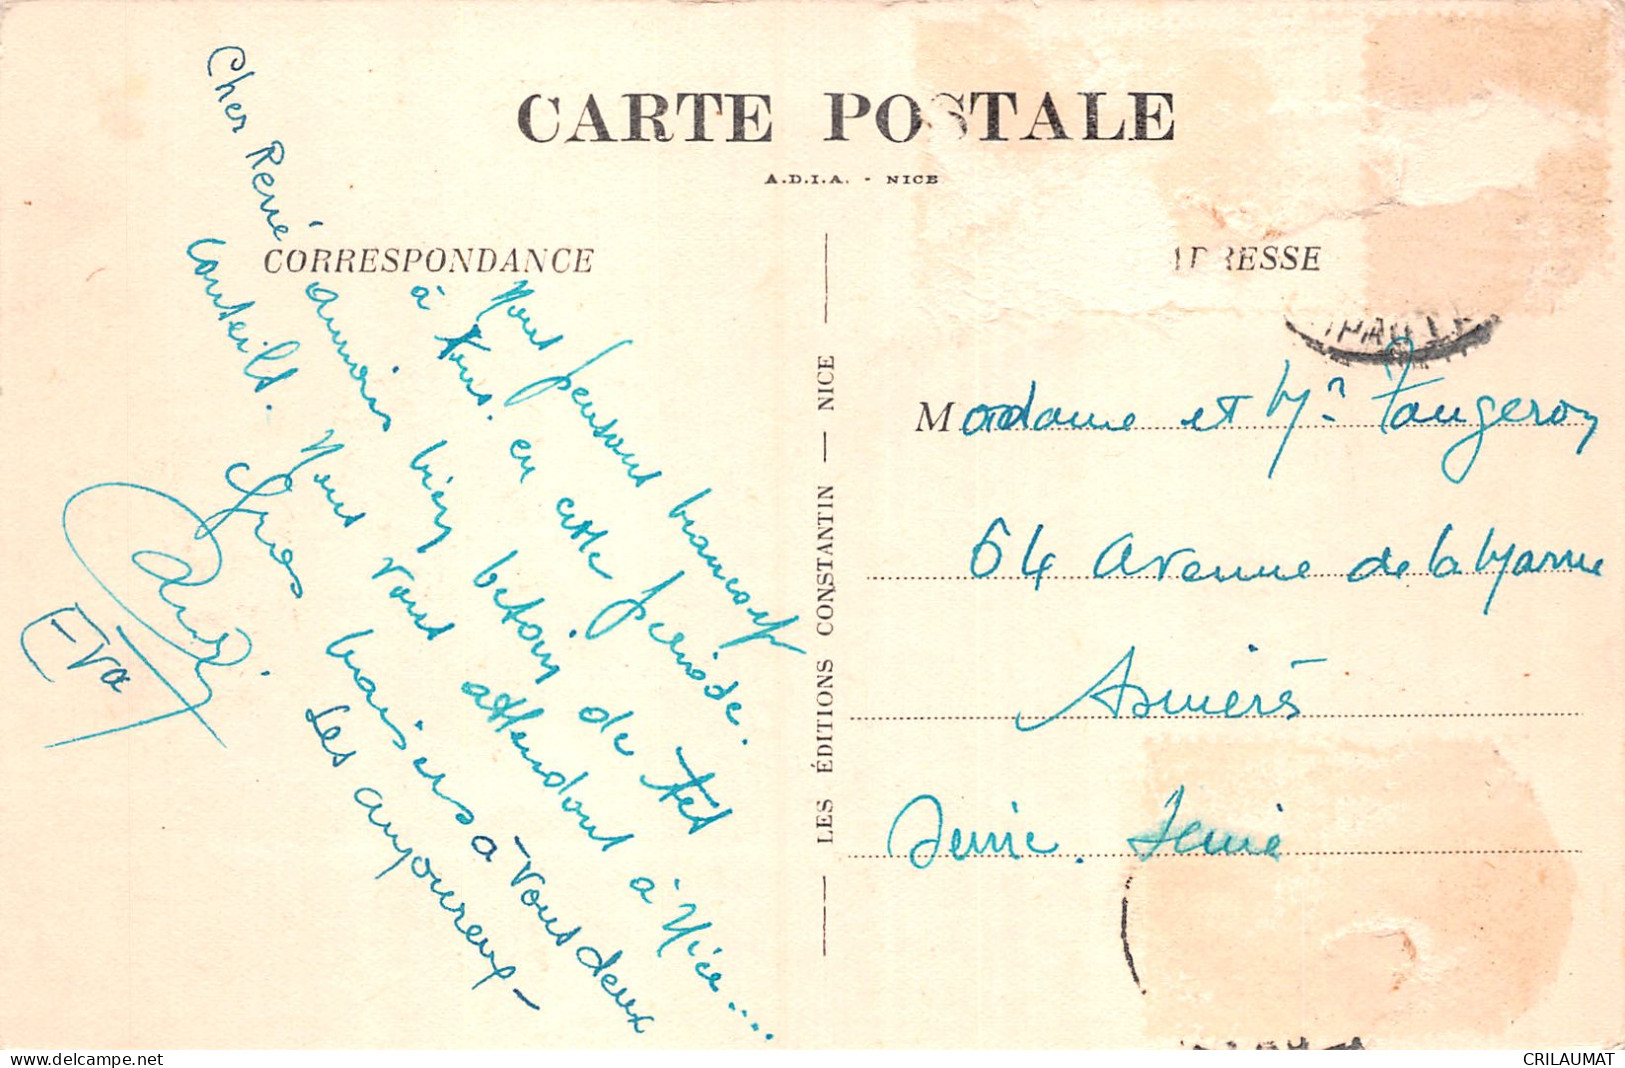 CARTE POSTALE
A.D.I.A. - NICE
CORRESPONDANCE
ADRESSE
Cher René
Nous pensons beaucoup
à vous. en cette période.
aurions bien besoin de tes
conseils. Nous vous attendons à Nice....
Gros baisers à vous deux
Les amoureux -
Eva
LES ÉDITIONS CONSTANTIN — NICE
Madame et Mr Faugeron
64 Avenue de la Marne
Asnières
Seine. Seine
CRILAUMAT